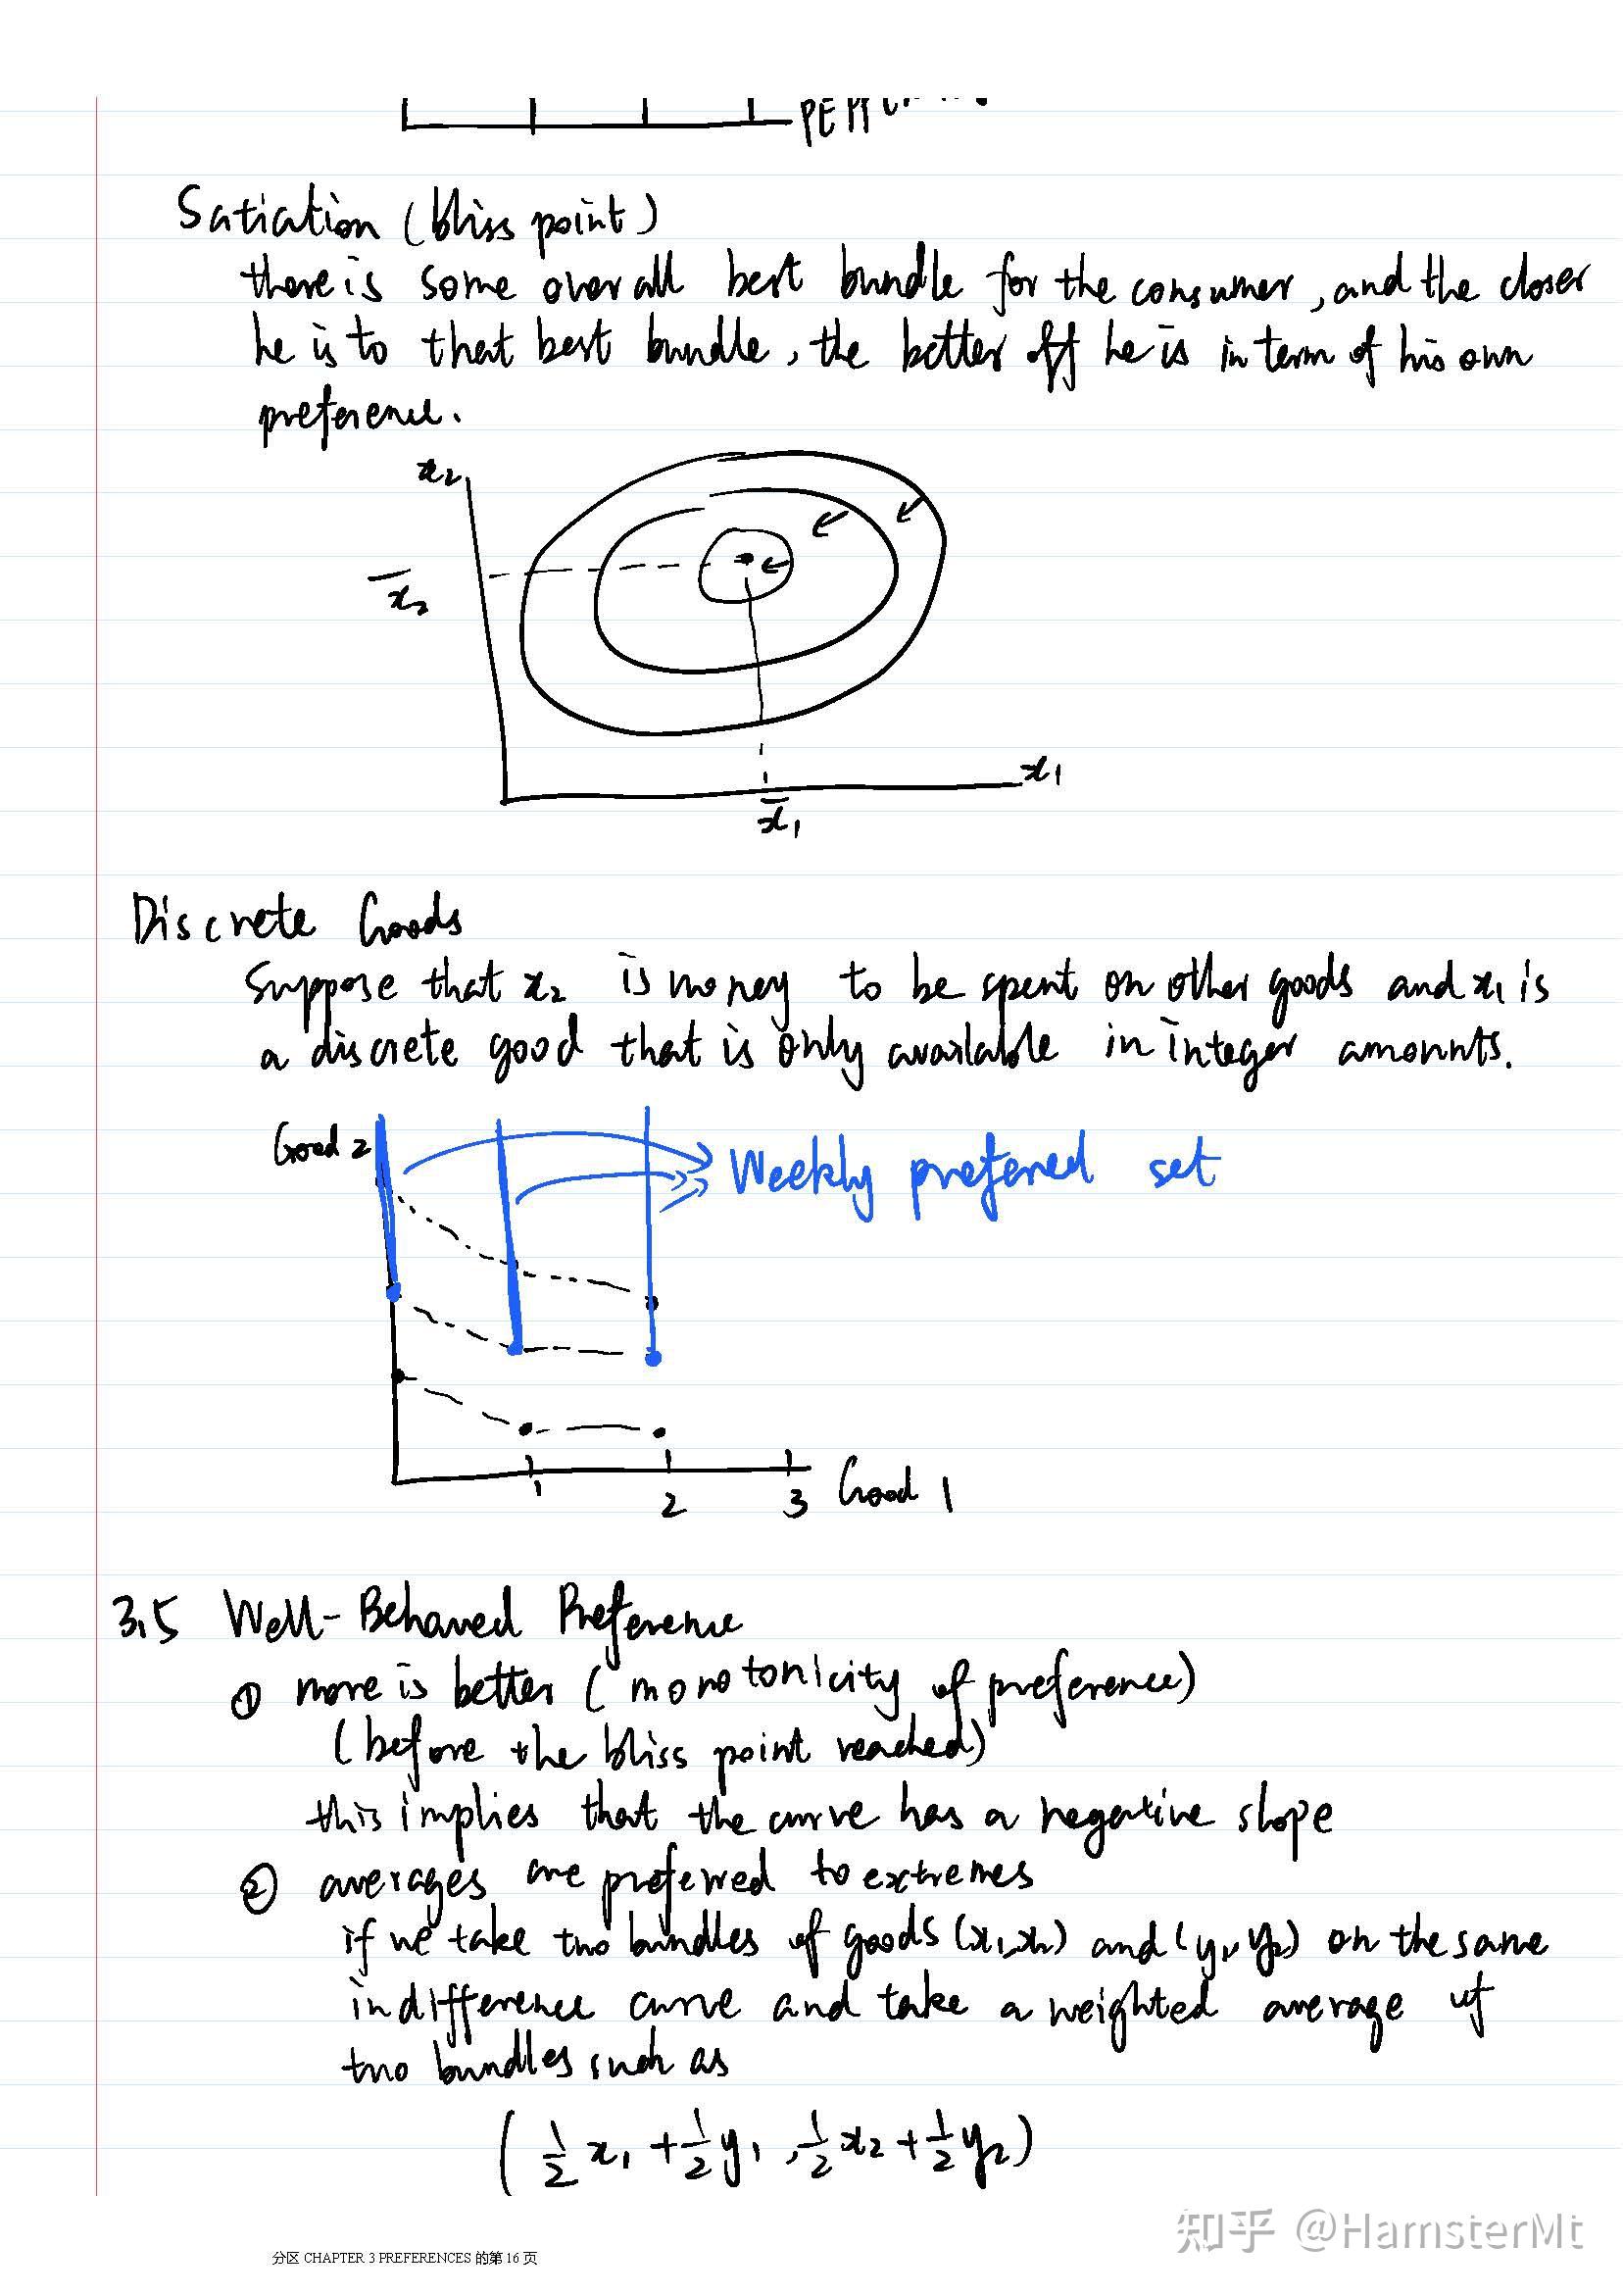 Satiation (bliss point)
there is some overall best bundle for the consumer, and the closer
he is to that best bundle, the better off he is in term of his own
preference.
x₂
x̄₂
x₁
x̄₁
Discrete Goods
Suppose that x₂ is money to be spent on other goods and x₁ is
a discrete good that is only available in integer amounts.
Good 2
Weekly preferred set
1 2 3 Good 1
3.5 Well-Behaved Preference
① more is better (monotonicity of preference)
(before the bliss point reached)
this implies that the curve has a negative slope
② averages are preferred to extremes
if we take two bundles of goods (x₁,x₂) and (y₁,y₂) on the same
indifference curve and take a weighted average of
two bundles such as
(½x₁+½y₁,½x₂+½y₂)
知乎 @HamsterMt
分区 CHAPTER 3 PREFERENCES 的第 16 页